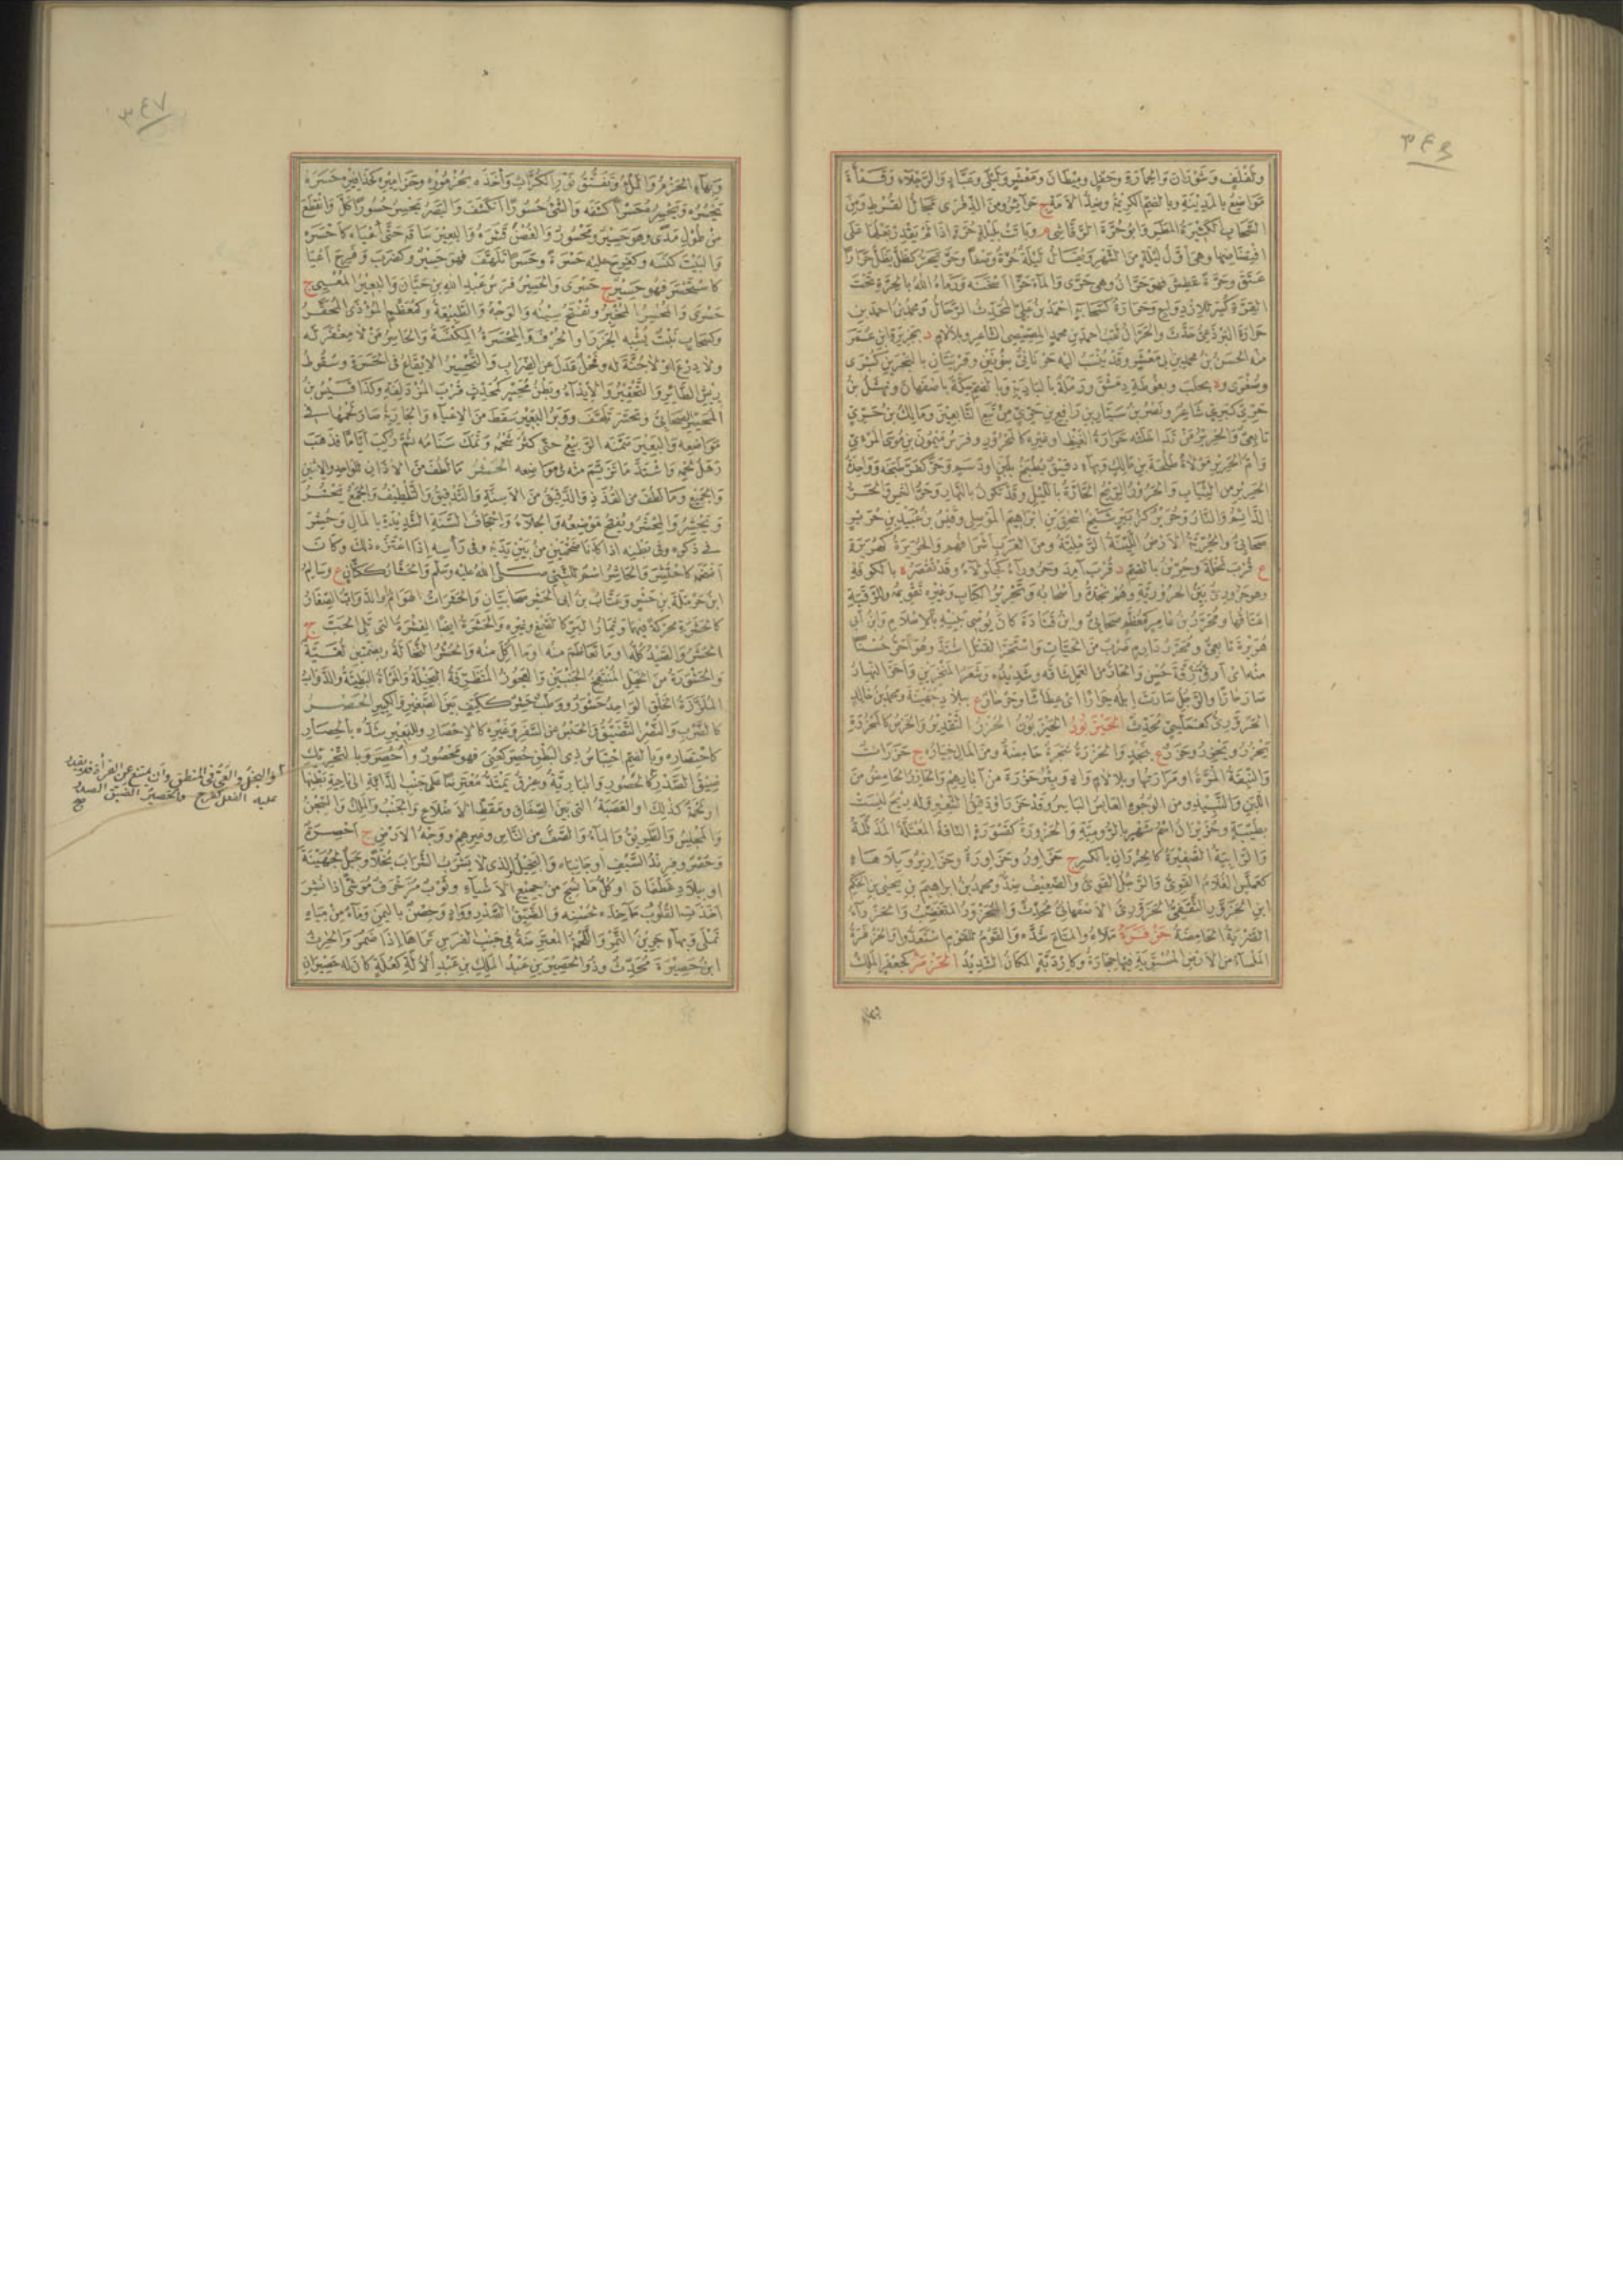 ٣٤٦
مواضع بالمدينة وبالضم الكريمة وضد الامة ج حرائر ومن الذفرى مجال القرط ومن
السحاب الكثيرة المطر وابو حرة الرقاشي م وباتت بليلة حرة اذا لم يقدر بعلها على
افتضاضها وهي اول ليلة من الشهر ويقال ليلة حرة وصفا وحر يحر كظل يظل حرارا
عتق وحرة عطش فهو حران وهي حرى والماء حرا اسخنه ورماه الله بالحرة تحت
القرة كسر للازدواج وحرارة كسحابة احمد بن علي المحدث الرحال ومحمد بن احمد بن
حرارة البرذعي حدث والحران لقب احمد بن محمد المصيصي الشاعر وبلا لام د بجزيرة ابن عمر
منه الحسن بن محمد بن ابي معشر وقد ينسب اليه حرناني بنونين وقريتان بالبحرين كبرى
وصغرى و ة بحلب وبغوطة دمشق ورملة بالبادية وبالضم سكة باصفهان ونهشل بن
حري كبري شاعر ونصر بن سيار بن رافع بن حري من تبع التابعين ومالك بن حري
تابعي والحرير من تداخلته حرارة الغيظ او غيره كالمحرور وفرس ميمون بن موسى المرئي
وام الحرير مولاة طلحة بن مالك وبهاء دقيق يطبخ بلبن او دسم وحر كفر طبخه وواحدة
الحرير من الثياب والحرور الريح الحارة بالليل وقد تكون بالنهار وحر الشمس والحر
الدائم والنار وحرير كزبير شيخ اسحق بن ابراهيم الموصلي وقيس بن عبيد بن حرير
صحابي والحرية الارض اللينة الرملية ومن العرب اشرافهم والحريرة كهريرة
ع قرب نخلة وحرين بالضم د قرب آمد وحروراء كجلولاء وقد تقصر ة بالكوفة
وهو حروري بين الحرورية وهم نجدة واصحابه وتحرير الكتاب وغيره تقويمه وللرقبة
اعتاقها ومحرر بن عامر كمعظم صحابي وابن قتادة كان يوصي بنيه بالاسلام وابن ابي
هريرة تابعي ومحرر دارم ضرب من الحيات واستحر القتل اشتد وهو احر حسنا
منه اي ارق رقة حسن والحار من العمل شاقه وشديده وشعر المنخرين واحر النهار
صار حارا والرجل صارت ابله حرارا اي عطاشا وحرحار ع ببلاد جهينة ومحمد بن خالد
الحروري كعملسي محدث الحيزبور الحيزبون الحزر التقدير والخرص كالمحزرة
يحزر ويحزر وحزر ع بنجد والحزرة شجرة حامضة ومن المال خياره ج حزرات
والنبقة المرة او مرارتها وبلا لام واد وبئر حزرة من آبارهم والحازر الحامض من
اللبن والنبيذ ومن الوجوه العابس الباسر وقد حزر وفيق الشعير وله ريح ليست
بطيبة وحزيران اسم شهر بالرومية والحزورة كقسورة الناقة المقتلة المذللة
والرابية الصغيرة كالحزوار بالكسر ج حزاور وحزاورة وحزازير وبلا هاء
كعملس الغلام القوي والرجل القوي والضعيف ضد ومحمد بن ابراهيم بن يحيى بن الحكم
ابن الحزور الثقفي الحزوري الاصفهاني محدث والمحزور المتغضب والحزراء
الضربة الحامضة حزفرة ملاه والمتاع شده والقوم للقوم استعدوا والحزفرة
الملساء من الارض المستوية فيها حجارة وكاردبة المكان الشديد الحزمر كجعفر الملك
٣٤٧
وبهاء الحزم والملء وتفتق نور الكراث واخذه بحزموره وحزاميره كحذافيره حسره
يحسره ويحسره حسرا كشفه والشيء حسورا انكشف والبصر يحسر حسورا كل وانقطع
من طول مدى وهو حسير ومحسور والغصن قشره والبعير ساقه حتى اعياه كاحسره
والبيت كنسه وكفرح عليه حسرة وحسرا تلهف فهو حسير وكضرب وفرح اعيا
كاستحسر فهو حسير ج حسرى والحسير فرس عبد الله بن حيان والبعير المعيي ج
حسرى والمحسر المخبر وتفتح سينه والوجه والطبيعة وكمعظم المؤذى المحقر
وكسحاب نبت يشبه الجزر او الحرف والمحسرة المكنسة والحاسر من لا مغفر له
ولا درع او لا جنة له وفحل عدل عن الضراب والتحسير الايقاع في الحسرة وسقوط
ريش الطائر والتحقير والايذاء وبطن محسر كمحدث قرب المزدلفة وكذا قيس بن
المحسر الصحابي وتحسر تلهف ووبر البعير سقط من الاعياء والجارية صار لحمها في
مواضعه والبعير سمنه الربيع حتى كثر شحمه وتمك سنامه ثم ركب اياما فذهب
رهل لحمه واشتد ما تزيم منه في مواضعه الحشر ما لطف من الاذان للواحد والاثنين
والجميع وما لطف من القذذ والدقيق من الاسنة والتدقيق والتلطيف والجمع يحشر
ويحشر والمحشر ويفتح موضعه والجلاء واجحاف السنة الشديدة بالمال وحشر
في ذكره وفي بطنه اذا كانا ضخمين من بين يديه وفي رأسه اذا اعتزه ذلك وكان
اضخمه كاحتشر والحاشر اسم للنبي صلى الله عليه وسلم والحشار ككتان ع وسالم
ابن حرملة بن حشر وعتاب بن ابي الحشر صحابيان والحشرات الهوام والدواب الصغار
كالحشرة محركة فيهما وثمار البر كالصمغ وغيره والحشرة ايضا القشرة التي تلي الحب ج
الحشر والصيد كله او ما تعاظم منه او ما اكل منه والحشر النخالة وبضمتين لغية
والحشورة من الخيل المنتفخ الجنبين والعجوز المتظرفة البخيلة والمرأة البطينة والدواب
الملززة الخلق الواحد حشور ووطب حشر ككتف بين الصغير والكبير الحصر
كالضرب والنصر التضييق والحبس عن السفر وغيره كالاحصار وللبعير شده بالحصار
كاحتصاره وبالضم احتباس ذي البطن حصر كعني فهو محصور واحصر وبالتحريك
ضيق الصدر كالحصور والبارية وعرق يمتد معترضا على جنب الدابة الى ناحية بطنها
او لحمة كذلك او العصبة التي بين الصفاق ومقط الاضلاع والجنب والملك والسجن
والمجلس والطريق والماء والصف من الناس وغيرهم ووجه الارض ج احصرة
وحصر وفرند السيف او جانباه والبخيل الذي لا يشرب الشراب بخلا وجبل لجهينة
او ببلاد غطفان او كل ما نسج من جميع الاشياء وثوب مزخرف موشى اذا نشر
اخذت القلوب مآخذه لحسنه والضيق الصدر وواد وحصن باليمن وماء من مياه
نملى وبهاء جرين التمر واللحمة المعترضة في جنب الفرس تراها اذا ضمر والحرث
ابن حصيرة محدث وذو الحصيرين عبد الملك بن عبد الالة كعلة كان له حصيران
والبخل والعي في المنطق وان يمتنع عن القراءة فلا يقدر
عليه الفعل كفرح والحصير الضيق الصدر
صح